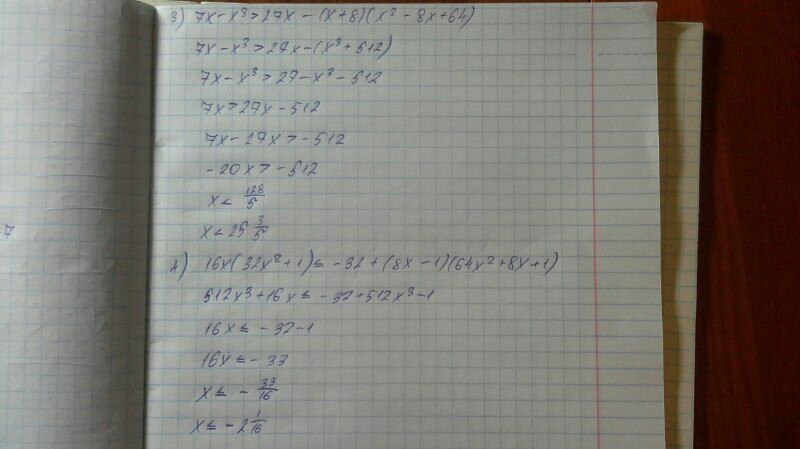 3) 7x - x³ > 27x - (x+8)(x² - 8x + 64)
7x - x³ > 27x - (x³ + 512)
7x - x³ > 27 - x³ - 512
7x > 27x - 512
7x - 27x > - 512
- 20x > - 512
x < 128/5
x < 25 3/5
4) 16x(32x² + 1) ≤ - 32 + (8x - 1)(64x² + 8x + 1)
512x³ + 16x ≤ - 32 + 512x³ - 1
16x ≤ - 32 - 1
16x ≤ - 33
x ≤ - 33/16
x ≤ - 2 1/16